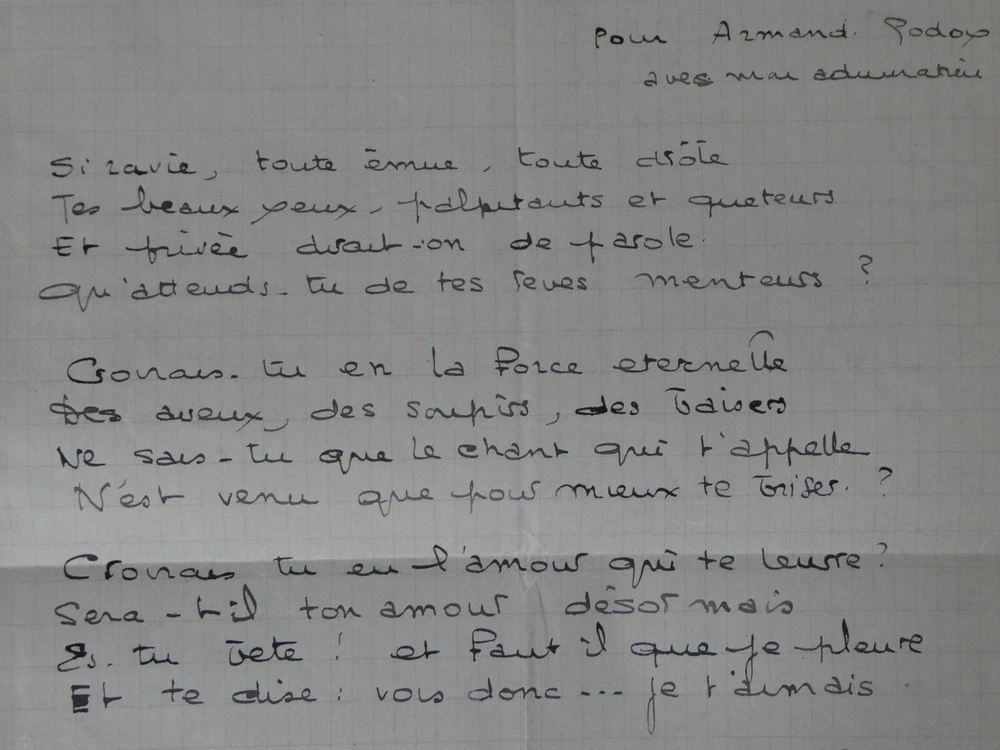 Pour Armand. Godoy
avec mon admiration
Si ravie, toute émue, toute drôle
Tes beaux yeux, palpitants et queteurs
Et privée dirait-on de parole.
Qu'attends-tu de tes reves menteurs ?
Croyais-tu en la force eternelle
Des aveux, des soupirs, des baisers
Ne sais-tu que le chant qui t'appelle
N'est venu que pour mieux te briser. ?
Croyais tu en l'amour qui te leurre ?
Sera-t-il ton amour désormais
Es-tu bete ! et faut il que je pleure
Et te dise : vois donc ... je t'aimais.